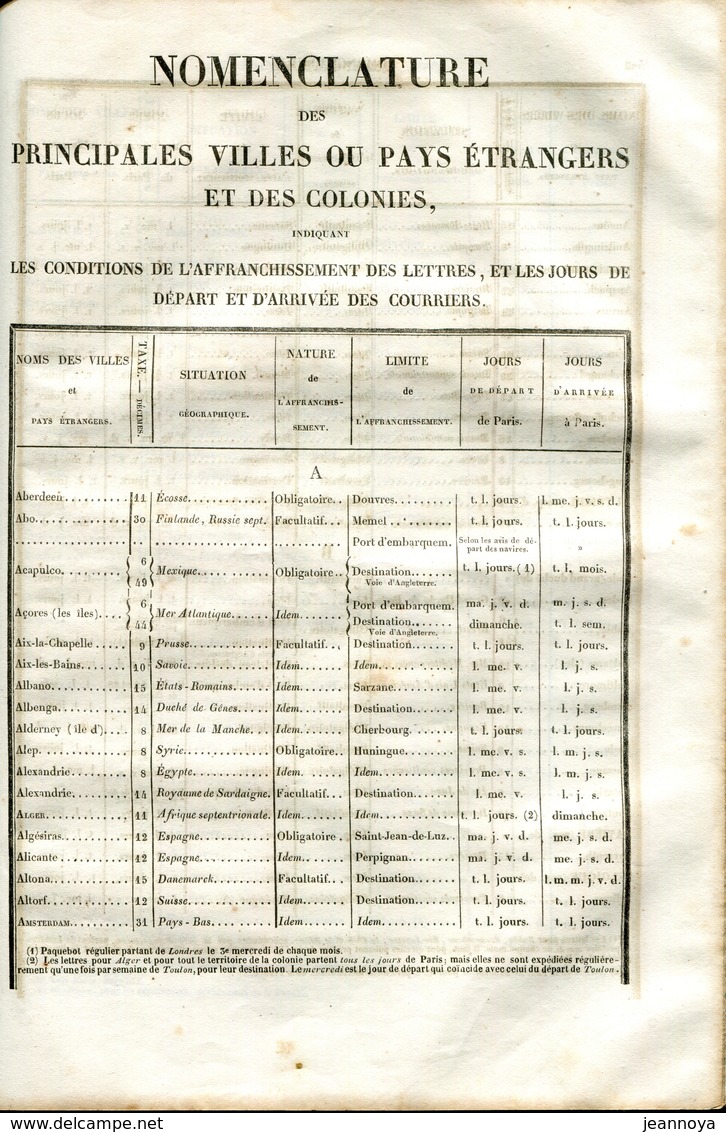 NOMENCLATURE
DES
PRINCIPALES VILLES OU PAYS ÉTRANGERS
ET DES COLONIES,
INDIQUANT
LES CONDITIONS DE L'AFFRANCHISSEMENT DES LETTRES, ET LES JOURS DE
DÉPART ET D'ARRIVÉE DES COURRIERS.
NOMS DES VILLES et PAYS ÉTRANGERS. | TAXE. — DÉCIMES. | SITUATION GÉOGRAPHIQUE. | NATURE de L'AFFRANCHISSEMENT. | LIMITE de L'AFFRANCHISSEMENT. | JOURS DE DÉPART de Paris. | JOURS D'ARRIVÉE à Paris.
A
Aberdeen.......... 11 Écosse............ Obligatoire.. Douvres......... t. l. jours. l. me. j. v. s. d.
Abo............... 30 Finlande, Russie sept. Facultatif... Memel .......... t. l. jours. t. l. jours.
Port d'embarquem. Selon les avis de départ des navires. »
Acapulco.......... { 6 49 } Mexique........... Obligatoire.. { Destination....... t. l. jours. (1) t. l. mois.
Voie d'Angleterre.
Açores (les îles).... { 6 44 } Mer Atlantique...... Idem....... { Port d'embarquem. ma. j. v. d. m. j. s. d.
Destination....... dimanche. t. l. sem.
Voie d'Angleterre.
Aix-la-Chapelle ..... 9 Prusse............ Facultatif... Destination....... t. l. jours. t. l. jours.
Aix-les-Bains....... 10 Savoie............ Idem....... Idem........... l. me. v. l. j. s.
Albano............ 15 États-Romains...... Idem....... Sarzane......... l. me. v. l. j. s.
Albenga........... 14 Duché de Gênes..... Idem....... Destination....... l. me. v. l. j. s.
Alderney (île d').... 8 Mer de la Manche... Idem....... Cherbourg....... t. l. jours. t. l. jours.
Alep.............. 8 Syrie............. Obligatoire.. Huningue........ l. me. v. s. l. m. j. s.
Alexandrie......... 8 Égypte............ Idem. ..... Idem........... l. me. v. s. l. m. j. s.
Alexandrie......... 14 Royaume de Sardaigne. Facultatif... Destination....... l. me. v. l. j. s.
ALGER............ 11 Afrique septentrionale. Idem....... Idem........... t. l. jours. (2) dimanche.
Algésiras........... 12 Espagne........... Obligatoire . Saint-Jean-de-Luz.. ma. j. v. d. me. j. s. d.
Alicante ........... 12 Espagne........... Idem....... Perpignan........ ma. j. v. d. me. j. s. d.
Altona............ 15 Danemarck......... Facultatif... Destination....... t. l. jours. l. m. m. j. v. d.
Altorf............. 12 Suisse............ Idem....... Destination....... t. l. jours. t. l. jours.
AMSTERDAM........ 31 Pays-Bas.......... Idem....... Idem........... t. l. jours. t. l. jours.
(1) Paquebot régulier partant de Londres le 3e mercredi de chaque mois.
(2) Les lettres pour Alger et pour tout le territoire de la colonie partent tous les jours de Paris; mais elles ne sont expédiées régulière-
rement qu'une fois par semaine de Toulon, pour leur destination. Le mercredi est le jour de départ qui coïncide avec celui du départ de Toulon.
jeannoya